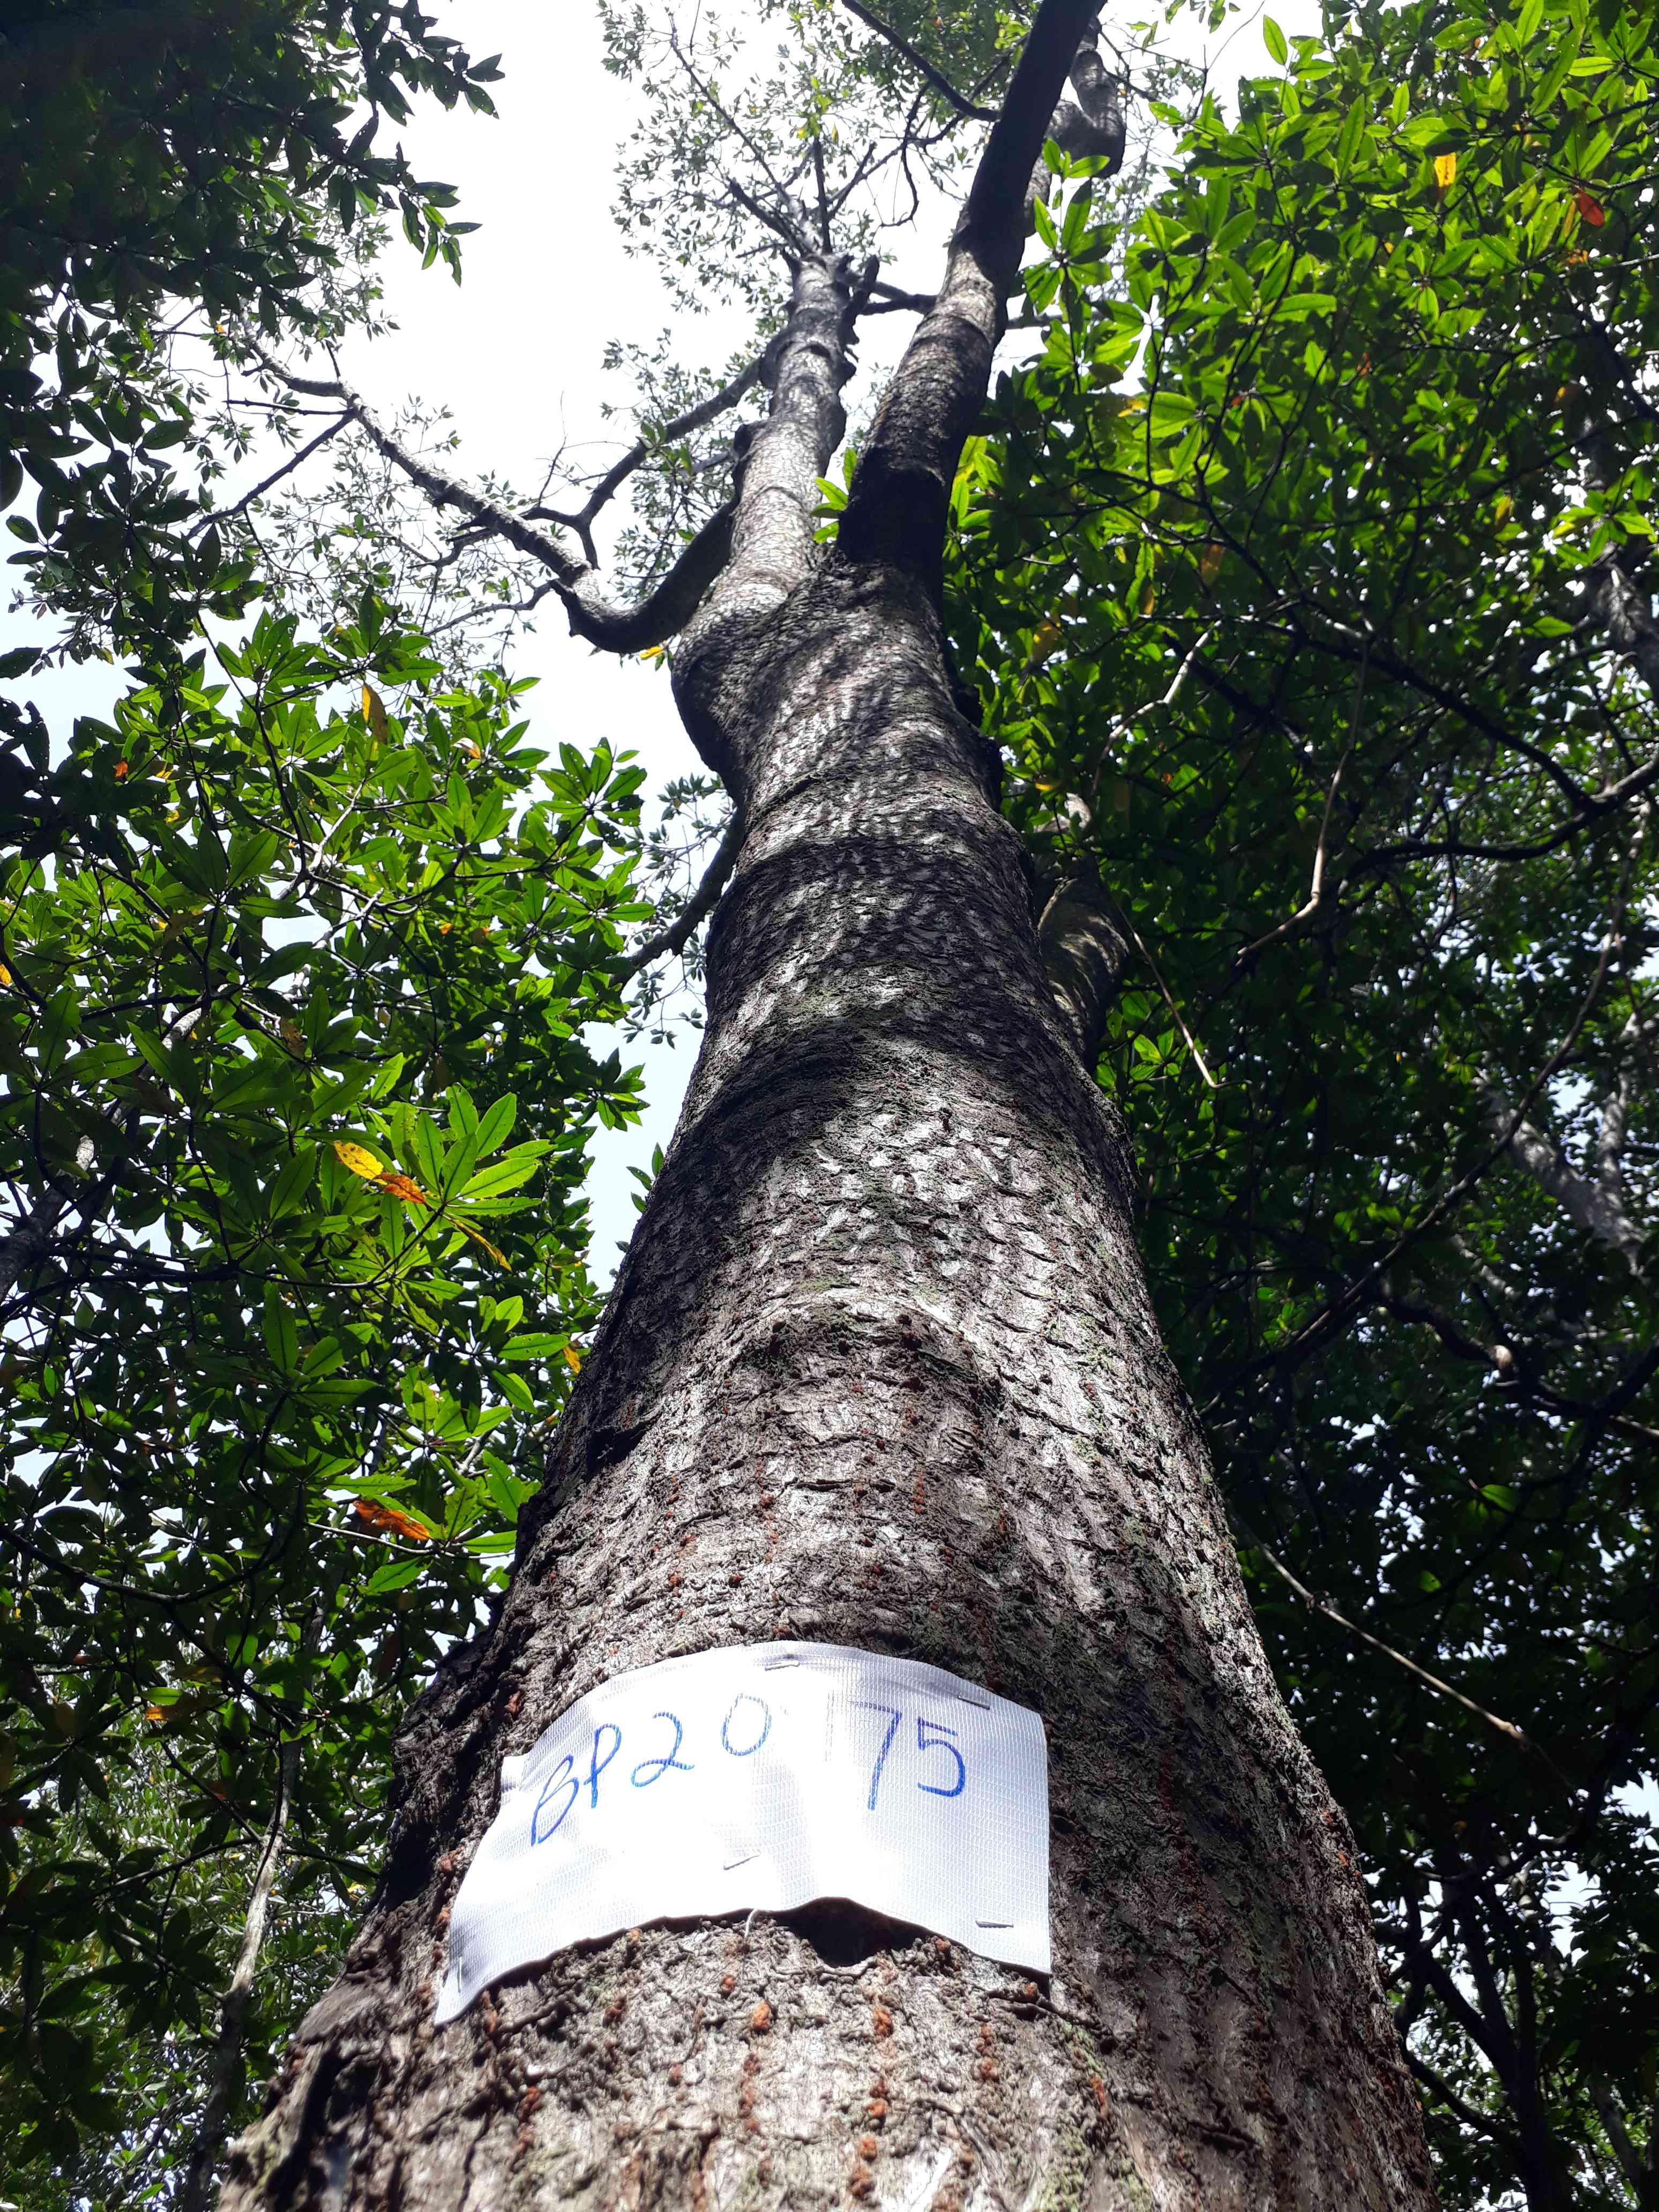 BP20 75